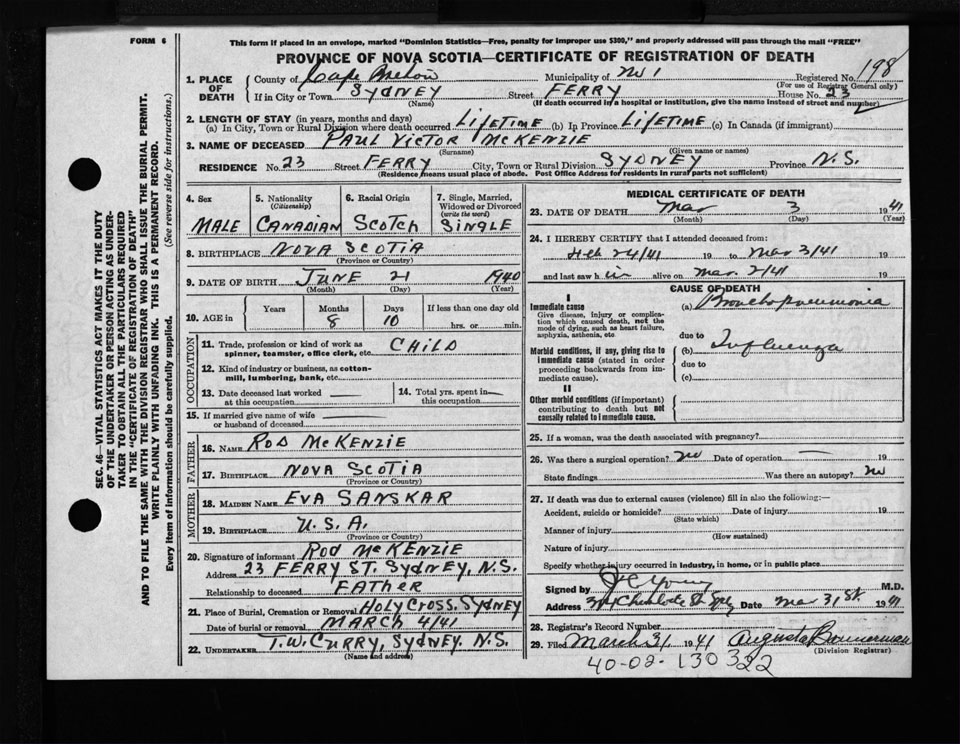 FORM 6
This form if placed in an envelope, marked "Dominion Statistics—Free, penalty for improper use $300," and properly addressed will pass through the mail "FREE"
PROVINCE OF NOVA SCOTIA—CERTIFICATE OF REGISTRATION OF DEATH
1. PLACE OF DEATH
County of Cape Breton Municipality of No 1 Registered No. 198
(For use of Registrar General only)
If in City or Town SYDNEY Street FERRY House No. 23
(Name) (If death occurred in a hospital or institution, give the name instead of street and number)
2. LENGTH OF STAY (in years, months and days)
(a) In City, Town or Rural Division where death occurred LIFETIME (b) In Province LIFETIME (c) In Canada (if immigrant)
3. NAME OF DECEASED PAUL VICTOR McKENZIE
(Surname) (Given name or names)
RESIDENCE No. 23 Street FERRY City, Town or Rural Division SYDNEY Province N.S.
(Residence means usual place of abode. Post Office Address for residents in rural parts not sufficient)
4. Sex 5. Nationality (Citizenship) 6. Racial Origin 7. Single, Married, Widowed or Divorced (write the word)
MALE CANADIAN SCOTCH SINGLE
8. BIRTHPLACE NOVA SCOTIA
(Province or Country)
9. DATE OF BIRTH JUNE 21 1940
(Month) (Day) (Year)
10. AGE in Years Months Days If less than one day
8 10 hrs. or min.
OCCUPATION
11. Trade, profession or kind of work as spinner, teamster, office clerk, etc. CHILD
12. Kind of industry or business, as cotton-mill, lumbering, bank, etc.
13. Date deceased last worked at this occupation
14. Total yrs. spent in this occupation
15. If married give name of wife or husband of deceased
FATHER
16. NAME ROD McKENZIE
17. BIRTHPLACE NOVA SCOTIA
(Province or Country)
MOTHER
18. MAIDEN NAME EVA SANSKAR
19. BIRTHPLACE U.S.A.
(Province or Country)
20. Signature of informant ROD McKENZIE
Address 23 FERRY ST. SYDNEY, N.S.
Relationship to deceased FATHER
21. Place of Burial, Cremation or Removal HOLY CROSS, SYDNEY
Date of burial or removal MARCH 4/41
22. UNDERTAKER T.W. CURRY, SYDNEY. N.S.
(Name and address)
MEDICAL CERTIFICATE OF DEATH
23. DATE OF DEATH Mar 3 1941
(Month) (Day) (Year)
24. I HEREBY CERTIFY that I attended deceased from:
Feb 24/41 19 to Mar 3/41 19
and last saw h im alive on Mar. 2/41 19
CAUSE OF DEATH
I
Immediate cause
Give disease, injury or complication which caused death, not the mode of dying, such as heart failure, asphyxia, asthenia, etc.
(a) Bronchopneumonia
due to
Morbid conditions, if any, giving rise to immediate cause (stated in order proceeding backwards from immediate cause).
(b) Influenza
due to
(c)
II
Other morbid conditions (if important) contributing to death but not causally related to immediate cause.
25. If a woman, was the death associated with pregnancy?
26. Was there a surgical operation? no Date of operation —
State findings Was there an autopsy? no
27. If death was due to external causes (violence) fill in also the following:—
Accident, suicide or homicide? Date of injury 19
(State which)
Manner of injury
(How sustained)
Nature of injury
Specify whether injury occurred in industry, in home, or in public place
Signed by J C Young M.D.
Address Charlotte St Syd Date Mar 31 st. 1941
28. Registrar's Record Number
29. Filed March 31, 1941 Augusta Bannerman
(Division Registrar)
40-02-130322
SEC. 46—VITAL STATISTICS ACT MAKES IT THE DUTY
OF THE UNDERTAKER OR PERSON ACTING AS UNDER-
TAKER TO OBTAIN ALL THE PARTICULARS REQUIRED
IN THE "CERTIFICATE OF REGISTRATION OF DEATH"
AND TO FILE THE SAME WITH THE DIVISION REGISTRAR WHO SHALL ISSUE THE BURIAL PERMIT.
WRITE PLAINLY WITH UNFADING INK. THIS IS A PERMANENT RECORD.
Every item of information should be carefully supplied. (See reverse side for instructions.)